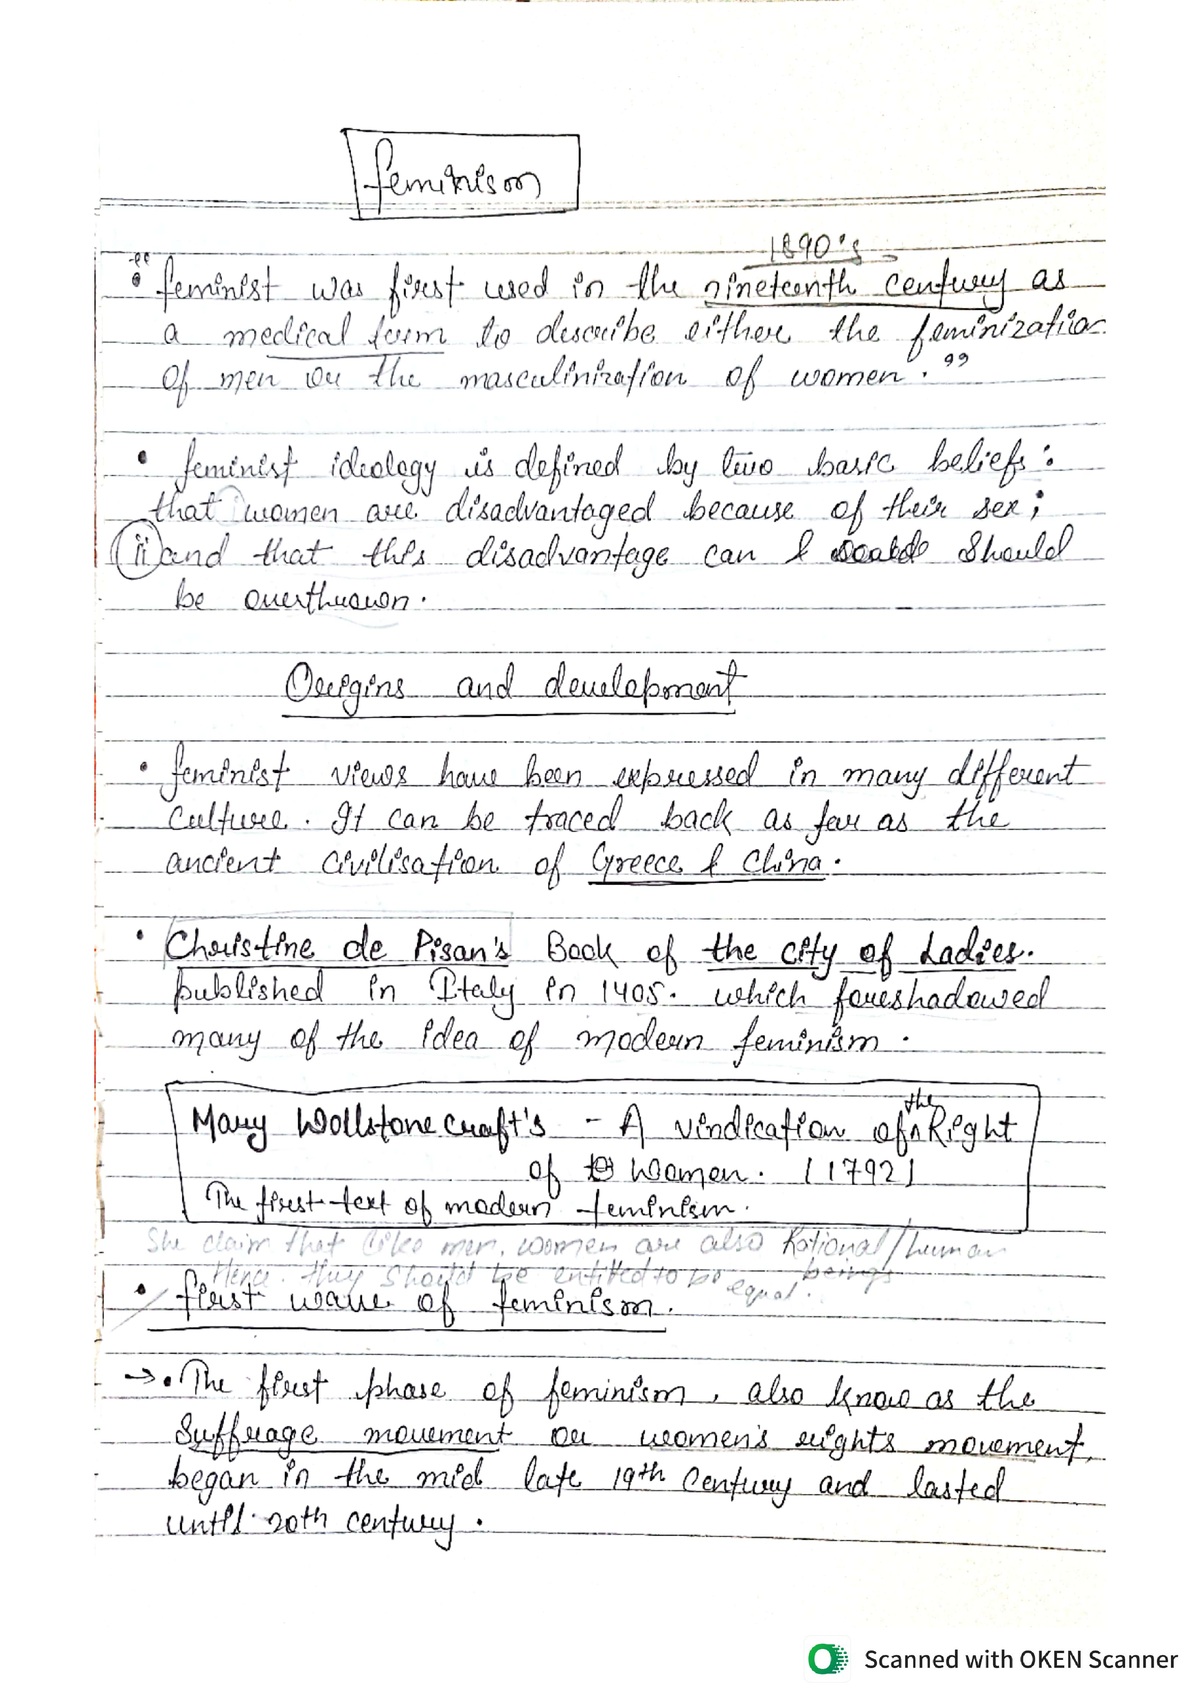 feminism
1890's
" feminist was first used in the nineteenth century as
a medical term to describe either the feminization
of men or the masculinization of women. "
• feminist ideology is defined by two basic beliefs:
that women are disadvantaged because of their sex;
(ii) and that this disadvantage can & should
be overthrown.
Origins and development
• feminist views have been expressed in many different
culture. It can be traced back as far as the
ancient civilisation of Greece & China.
• Christine de Pisan's Book of the city of Ladies.
published in Italy in 1405. which foreshadowed
many of the idea of modern feminism.
Mary Wollstonecraft's - A vindication of the Right
of Women. [1792]
The first text of modern feminism.
She claim that like men, women are also Rational/human beings
Hence. they should be entitled to be equal.
• first wave of feminism.
→ • The first phase of feminism, also know as the
Suffrage movement or women's rights movement,
began in the mid late 19th century and lasted
until 20th century.
Scanned with OKEN Scanner